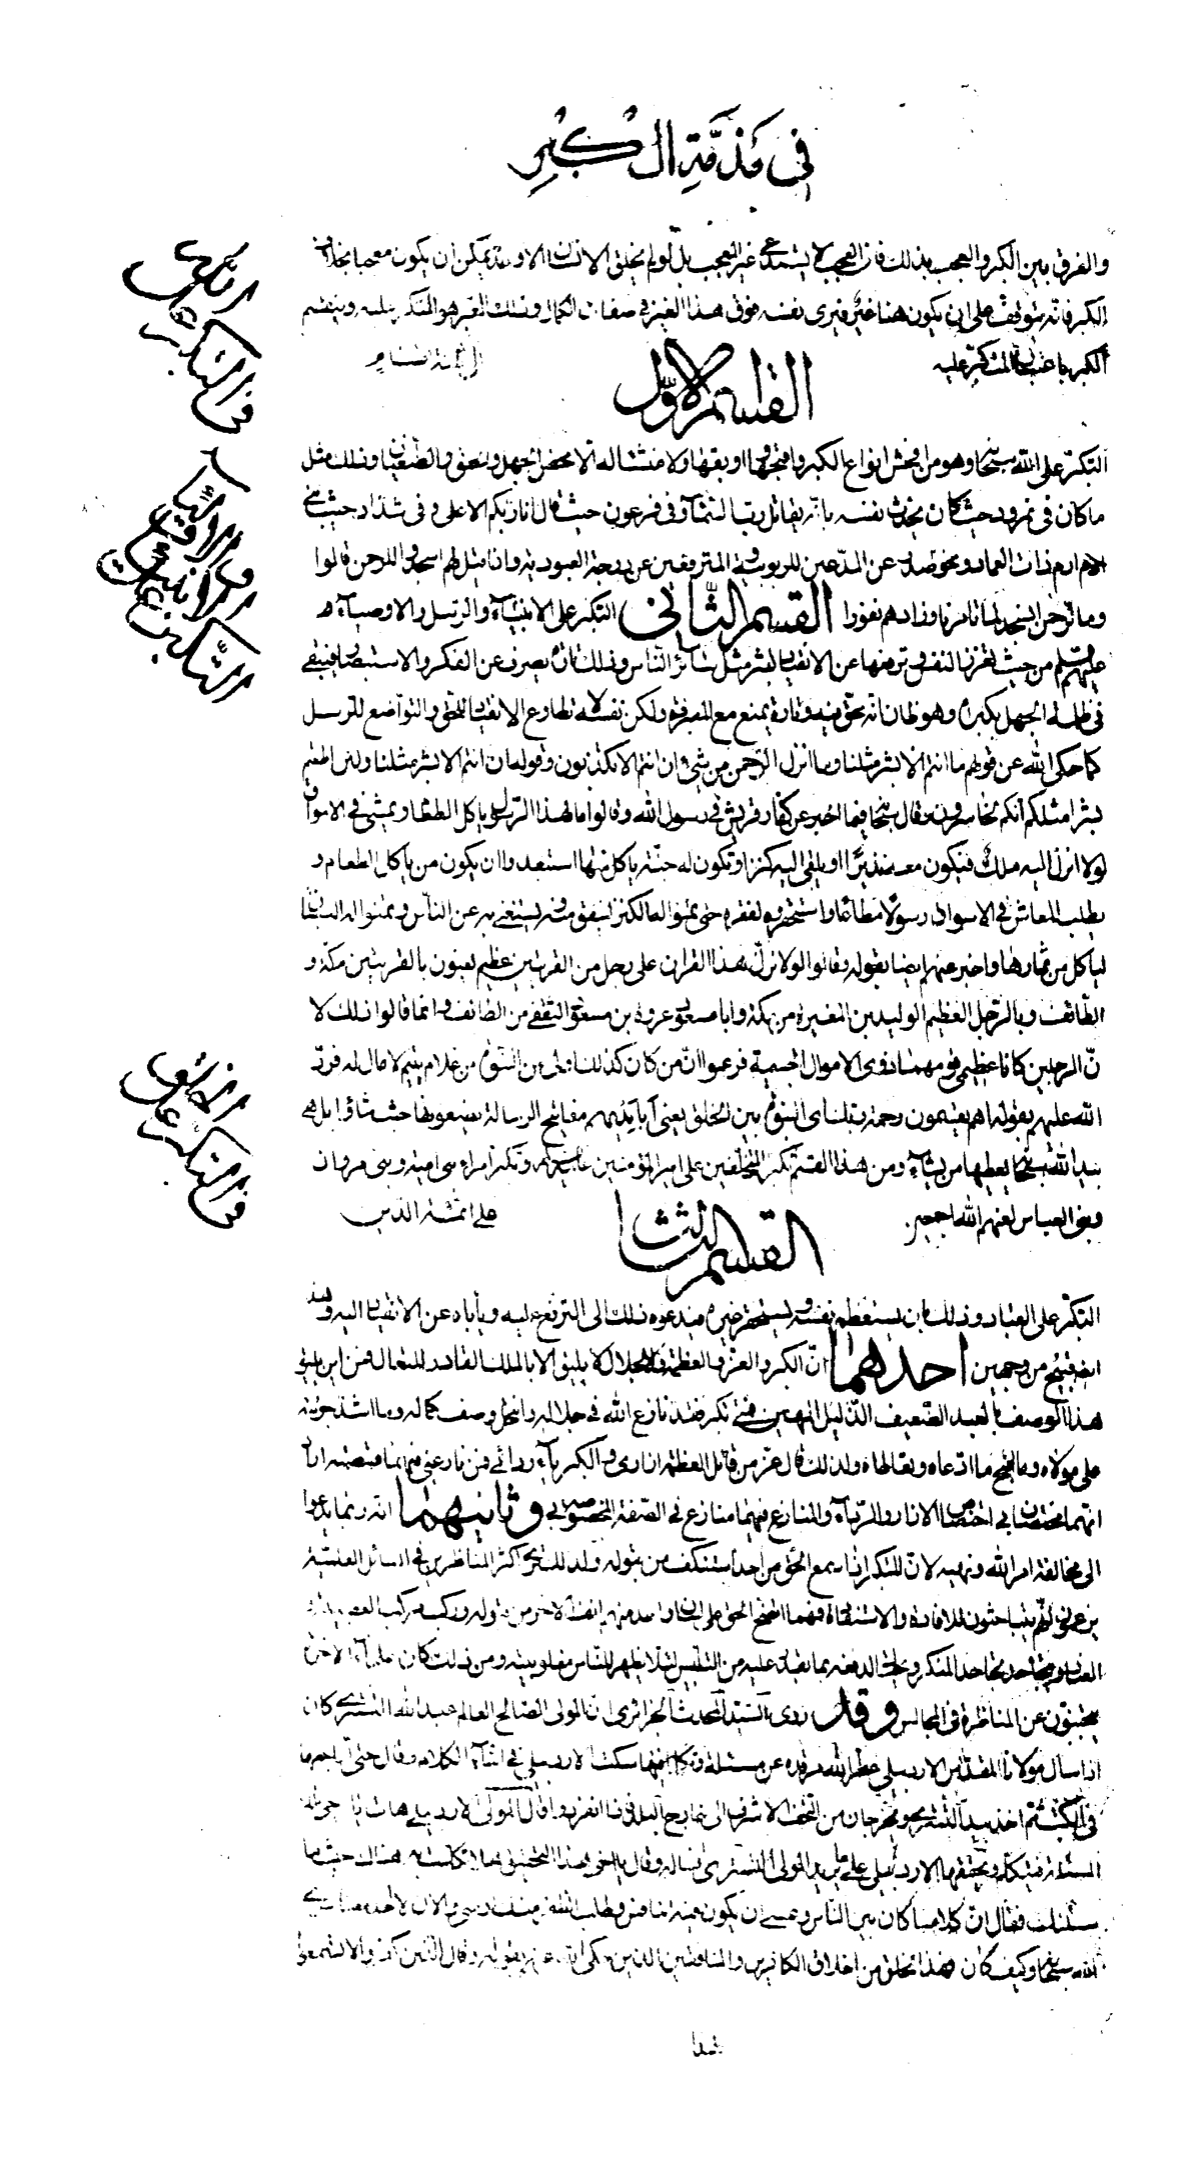 في مذمّة الكبر
والفرق بين الكبر والعجب بذلك فان العجب لا يستدعى غير المعجب بل لو لم يخلق الانسان الا وحده يمكن ان يكون معجبا بخلاف
الكبر فانه يتوقف على ان يكون هنا غير فيرى نفسه فوق هذا الغير في صفات الكمال وذلك الغير هو المتكبر عليه وينقسم
الكبر باعتبار المتكبر عليه الى ثلثة اقسام
القسم الاوّل
التكبّر على الله سبحانه وهو من افحش انواع الكبر واقبحها واوبقها ولا منشأ له الا محض الجهل والحمق والطغيان وذلك مثل
ما كان في نمرود حيث كان يحدث نفسه بانه يقاتل رب السماء وفي فرعون حيث قال انا ربكم الاعلى وفي شداد حيث بنى
ارم ذات العماد ونحو ذلك عن المدّعين للربوبية والمترفعين عن درجة العبودية واذا قيل لهم اسجدوا للرحمن قالوا
وما الرحمن انسجد لما تامرنا وزادهم نفورا القسم الثّاني التكبر على الانبياء والرسل والاوصياء
عليهم السلم من حيث تعزز النفس وترفعها عن الانقياد لبشر مثل سائر الناس وذلك تارة يصرف عن الفكر والاستبصار فيبقى
في ظلمة الجهل بكبره وهو ظان انه محق فيه وتارة يمنع مع المعرفة ولكن نفسه لا تطاوع الانقياد للحق والتواضع للرسل
كما حكى الله عن قولهم ما انتم الا بشر مثلنا وما انزل الرحمن من شيء ان انتم الا تكذبون وقوله ان انتم الا بشر مثلنا ولئن اطعتم
بشرا مثلكم انكم اذا لخاسرون وقال سبحانه فيما اخبر عن كفار قريش في رسول الله وقالوا ما لهذا الرسول ياكل الطعام ويمشي في الاسواق
لولا انزل اليه ملك فيكون معه نذيرا او يلقى اليه كنز او تكون له جنّة ياكل منها استبعدوا ان يكون من ياكل الطعام و
يطلب المعاش في الاسواق رسولا مطاعا واستحقروه لفقره حتى تمنوا له الكنز لينفق منه ويستغني به عن الناس وتمنوا له البستان
لياكل من ثمارها واخبر عنهم ايضا بقوله وقالوا لولا نزل هذا القران على رجل من القريتين عظيم يعنون بالقريتين مكة و
الطّائف وبالرجل العظيم الوليد بن المغيرة من مكة وابا مسعود عروة بن مسعود الثقفي من الطائف وانما قالوا ذلك لا
نّ الرجلين كانا عظيمي قومهما وذوى الاموال الجسيمة فزعموا انّ من كان كذلك اولى من النبوّة من غلام يتيم لا مال له فردّ
الله عليهم بقوله اهم يقسمون رحمة ربك اي النبوة بين الخلق يعني أبايديهم مفاتيح الرسالة يضعونها حيث شاؤا بل هي
بيد الله سبحانه يعطيها من يشاء ومن هذا القسم تكبر المتخلّفين على امير المؤمنين وتكبر امراء بني امية وبني مروان
وبني العباس لعنهم الله اجمعين على ائمة الدين
القسم الثالث
التكبّر على العباد وذلك بان يستعظم نفسه ويستحقر غيره فيدعوه ذلك الى الترفع عليه ويأباه عن الانقياد اليه وهذا
ايضا قبيح من وجهين احدهما انّ الكبر والعز والعظمة والجلال لا يليق الا بالملك القادر المتعال فمن اين يليق
هذا الوصف بالعبد الضّعيف الذّليل المهين فمتى تكبر فقد نازع الله في جلاله وانتحل وصف كماله وما اشد جرئته
على مولاه وما اقبح ما ادّعاه وتعاطاه ولذلك قال عز من قائل العظمة ازاري والكبرياء ردائي فمن نازعني فيهما قصمته اراد
انهما مختصان بي اختصاص الازار والرداء والمنازع فيهما منازع في الصفة المخصوص بي وثانيهما انه ربما يدعوا
الى مخالفة امر الله ونهيه لان المتكبر اذا سمع الحق من احد استنكف من قبوله ولذلك ترى اكثر المناظرين في المسائل العلمية
يزعمون انهم يتباحثون للافادة والاستفادة فمهما اتضح الحق على لسان واحد منهم انف الاخر من قبوله وركب مركب العصبية
العناد ويجاحد تجاحد المنكر ويحتال لدفعه بما يقدر عليه من التلبيس لئلا يظهر للناس مغلوبيته ومن ذلك كان علماء الاخرة
يجتنبون عن المناظرة في المجالس وقد روى السّيّد المحدث الجزائرى ان المولى الصالح العالم عبد الله التسترى كان
اذا سأل مولانا المقدس الاردبيلي عطر الله مرقده عن مسئلة وتكلما فيها سكت الاردبيلي في اثناء الكلام وقال حتى اراجعها
في الكتب ثم اخذ بيد التستري ويخرجان من النجف الاشرف الى خارج البلد فاذا انفردا قال المولى الاردبيلي هات يا اخي تلك
المسئلة فيتكلم ويحققها الاردبيلي على ما يريد المولى التستري فساله وقال يا اخي هذا التحقيق لما لا تكلمت به هناك حيث ما
سئلتك فقال ان كلامنا كان بين الناس وعسى ان يكون فيه تنافس وطلب الظفر منك او مني والان لا احد معنا سوى
الله سبحانه وكيف كان فهذا الخلق من اخلاق الكافرين والمنافقين الذين حكى الله عنهم بقوله وقال الذين كفروا لا تسمعوا
لهذا
في التكبر على